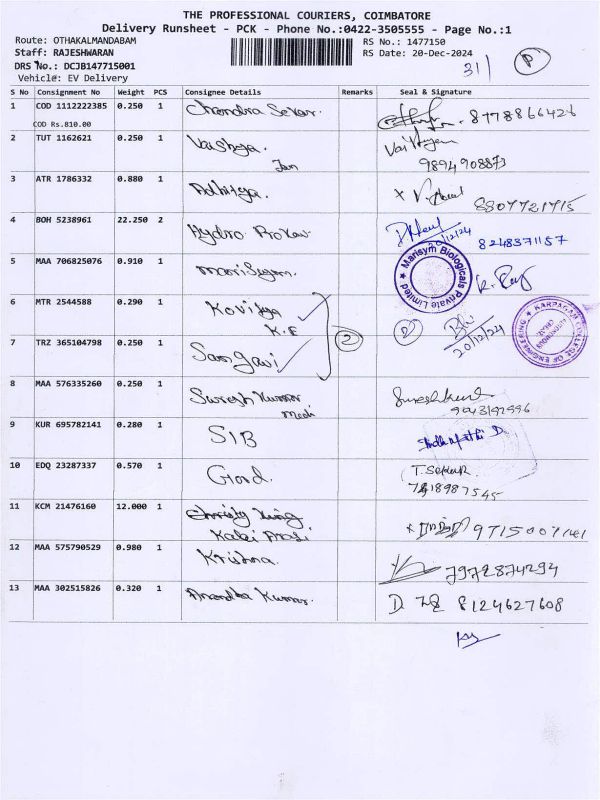 THE PROFESSIONAL COURIERS, COIMBATORE
Delivery Runsheet - PCK - Phone No.:0422-3505555 - Page No.:1
Route: OTHAKALMANDABAM RS No.: 1477150
Staff: RAJESHWARAN RS Date: 20-Dec-2024
DRS No.: DCJB147715001 31 P
Vehicle: EV Delivery
S No Consignment No Weight PCS Consignee Details Remarks Seal & Signature
1 COD 1112222385 0.250 1 Chandra Sekar 8778866426
COD Rs.810.00
2 TUT 1162621 0.250 1 Vaishnya.
Jan 9894908873
3 ATR 1786332 0.880 1 Adhitya. 8807721715
4 BOH 5238961 22.250 2 Hydro 20/12/24 8248371157
Marisym Biologicals Private Limited
5 MAA 706825076 0.910 1
6 MTR 2544588 0.290 1 Kovidya
K.E 2 20/12/24
KARPAGAM COLLEGE OF ENGINEERING
7 TRZ 365104798 0.250 1 Sangavi
8 MAA 576335260 0.250 1 Suresh Kumar
9043192996
9 KUR 695782141 0.280 1 SIB
10 EDQ 23287337 0.570 1 T. Sekar
7418987545
11 KCM 21476160 12.000 1 Christy King
12 MAA 575790529 0.980 1 Krishna. 7972874294
13 MAA 302515826 0.320 1 Anandha Kumar. 8124627608